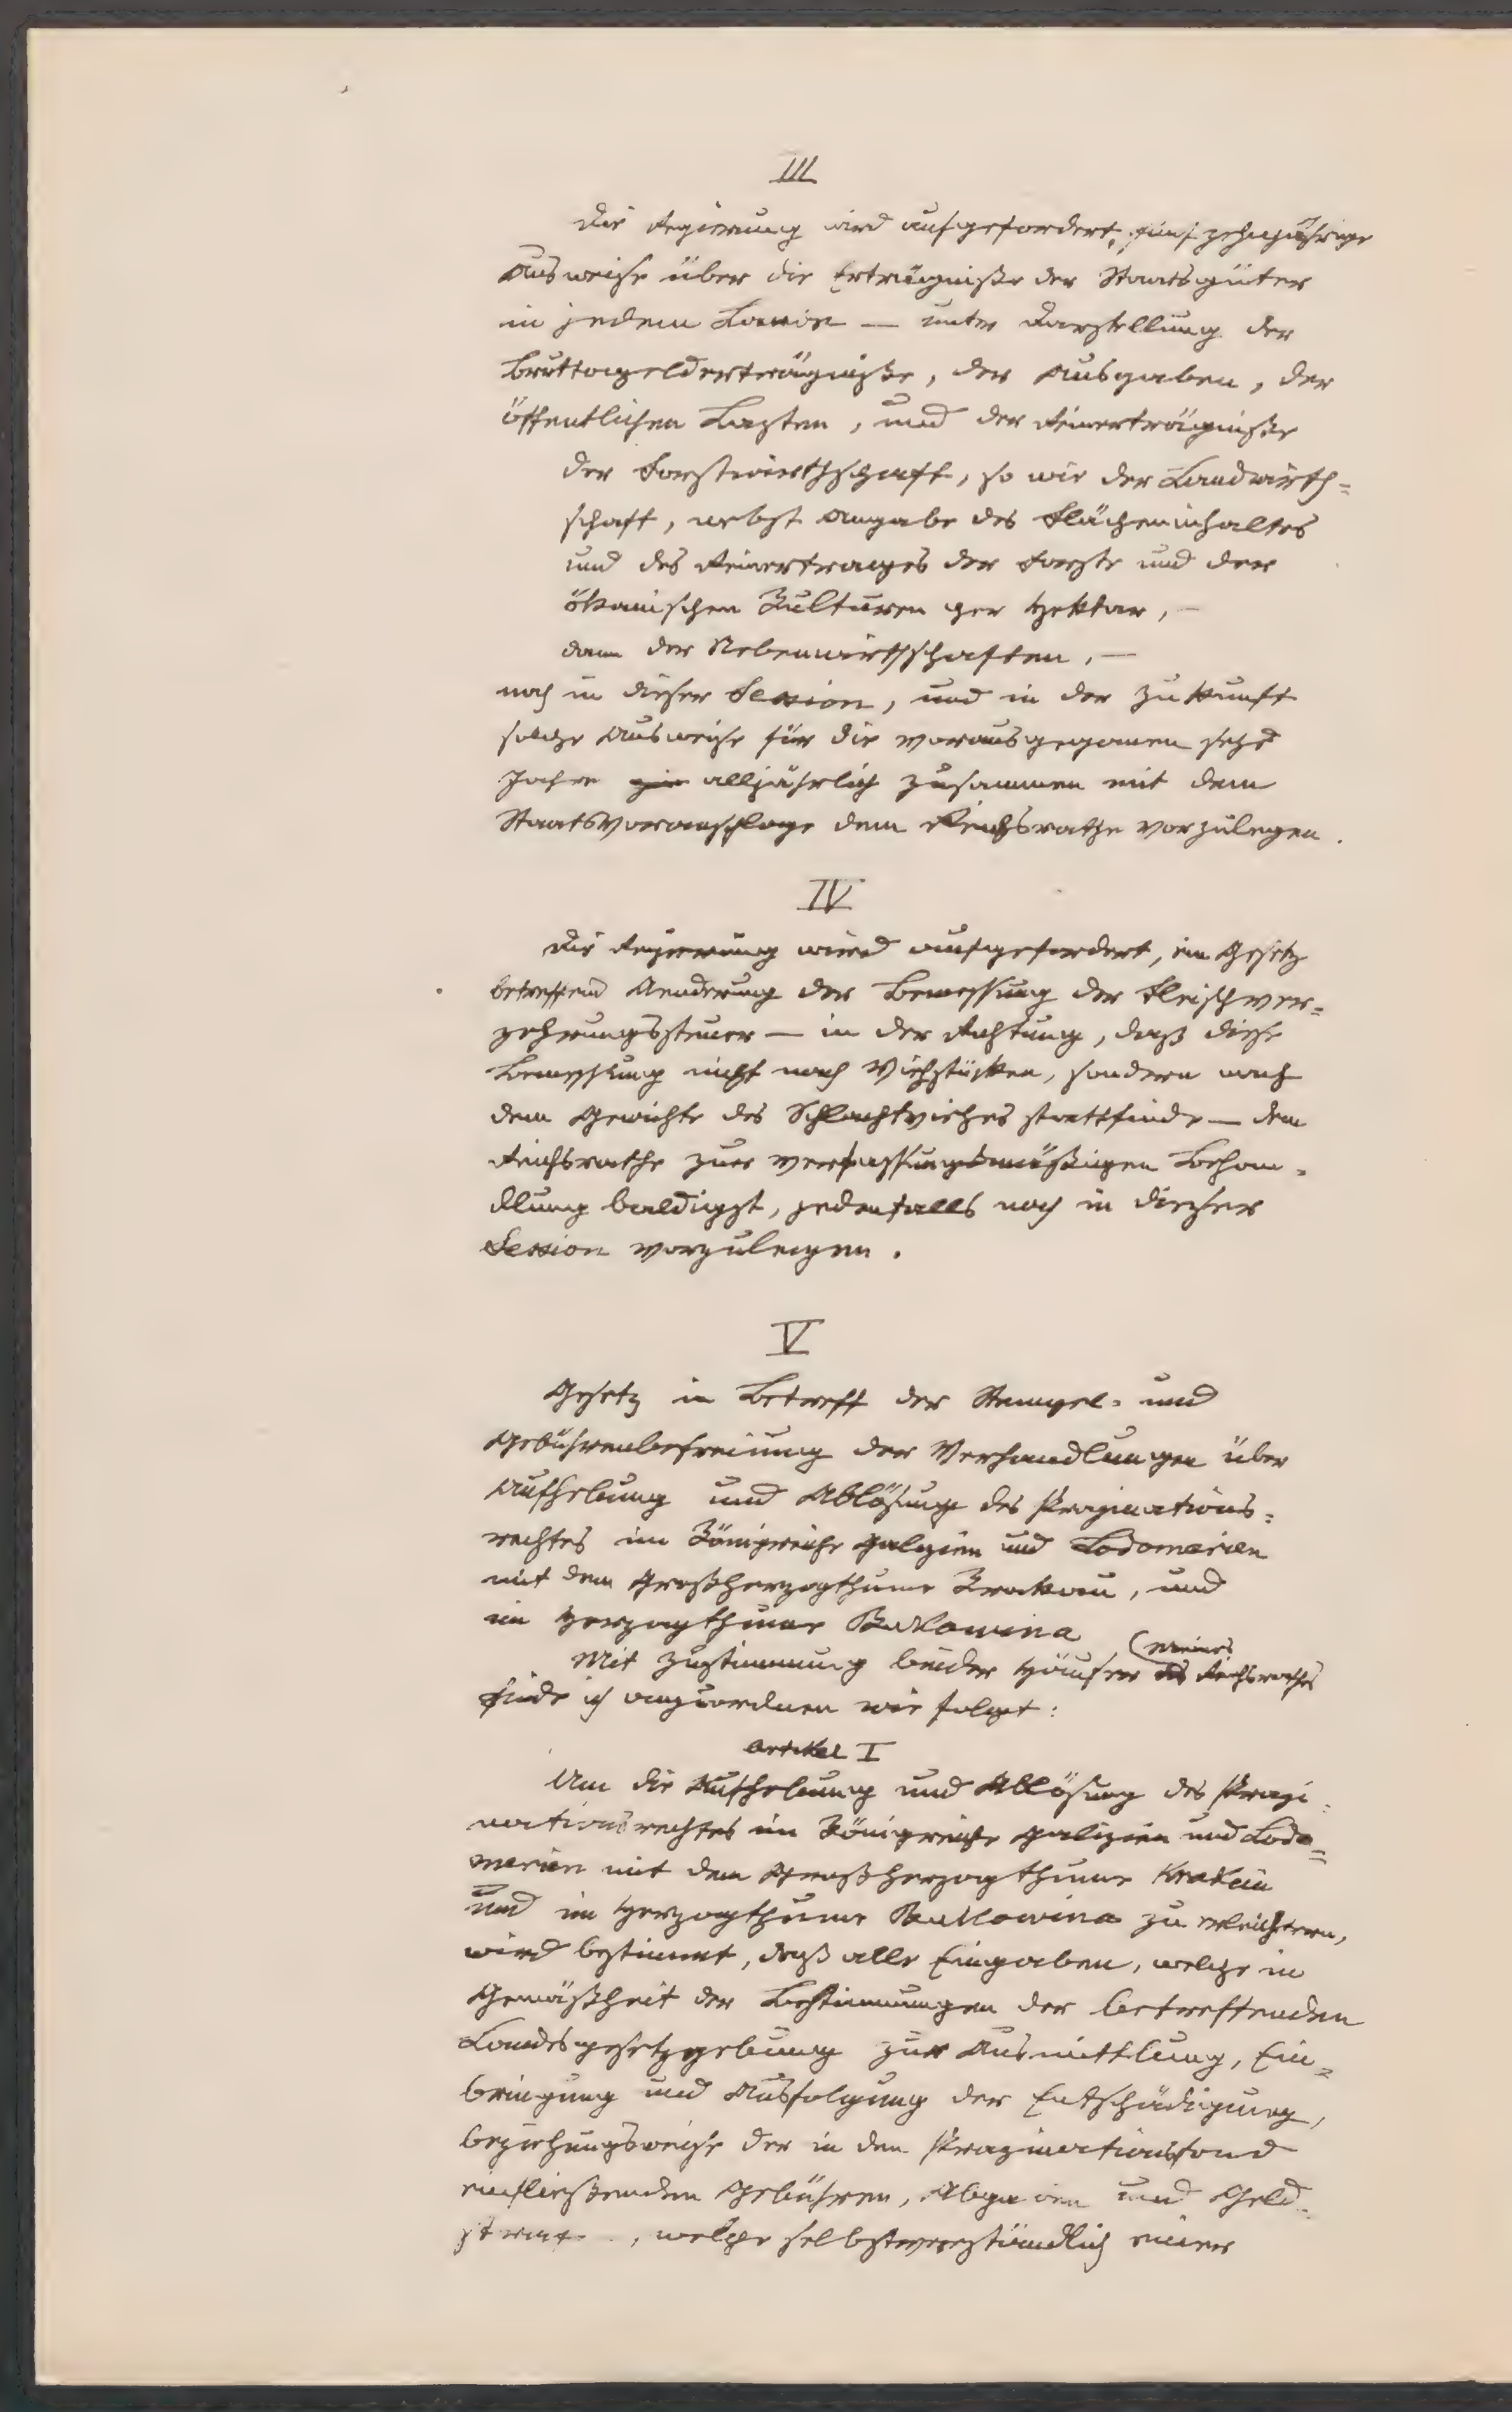 III
Die Regierung wird aufgefordert, fünfzehnjährige
Ausweise über die Erträgnisse der Staatsgüter
in jedem Kronlande — unter Darstellung der
Bruttogelderträgnisse, der Ausgaben, der
öffentlichen Lasten, und der Reinerträgnisse
der Forstwirthschaft, so wie der Landwirth=
schaft, nebst Angabe des Flächeninhaltes
und des Reinertrages der Forste und der
ökonischen Kulturen per Hektar, —
dann der Nebenwirthschaften, —
noch in dieser Session, und in der Zukunft
solche Ausweise für die vorausgegangenen sechs
Jahre alljährlich zusammen mit dem
Staatsvoranschlage dem Reichsrathe vorzulegen.
IV
Die Regierung wird aufgefordert, ein Gesetz
betreffend Aenderung der Bemessung der Fleischver=
zehrungssteuer — in der Richtung, daß diese
Bemessung nicht nach Viehstücken, sondern nach
dem Gewichte des Schlachtviehes stattfinde — dem
Reichsrathe zur verfassungsmäßigen Behan=
dlung baldigst, jedenfalls noch in dieser
Session vorzulegen.
V
Gesetz in Betreff der Stempel= und
Gebührenbefreiung der Verhandlungen über
Aufhebung und Ablösung des Propinations=
rechtes im Königreiche Galizien und Lodomerien
mit dem Großherzogthume Krakau, und
im Herzogthume Bukowina
Mit Zustimmung beider Häuser des Reichsrathes
(meines
finde ich anzuordnen wie folgt:
Artikel I
Um die Aufhebung und Ablösung des Propi=
nationsrechtes im Königreiche Galizien und Lodo=
merien mit dem Großherzogthume Krakau
und im Herzogthume Bukowina zu erleichtern,
wird bestimmt, daß alle Eingaben, welche in
Gemäßheit der Bestimmungen der betreffenden
Landesgesetzgebung zur Ausmittlung, Ein=
bringung und Ausfolgung der Entschädigung,
beziehungsweise der in den Propinationsfond
einfließenden Gebühren, Abgaben und Geld=
, welche selbstverständlich einer